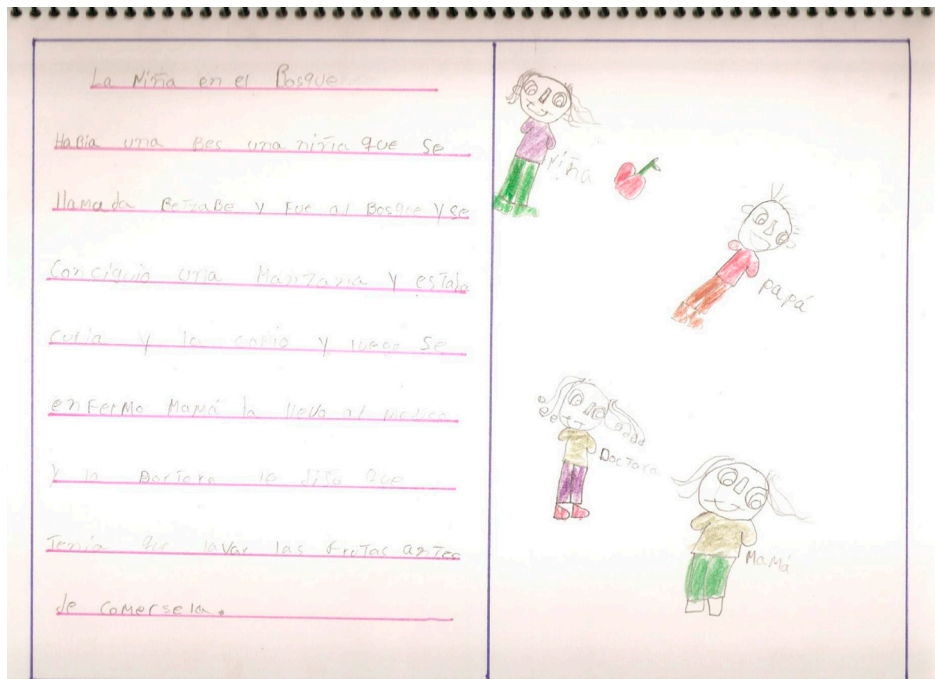 La Niña en el Bosque
Había una Bes una niña que se
llamada Betzabe y Fue al Bosque y se
Conciguio una Manzana y estaba
culia y la comio y luego se
enfermo Mamá la llevo al medico
y la Doctora le dijo que
Tenia que lavar las frutas antes
de comersela.
Niña
papá
Doctora
Mamá